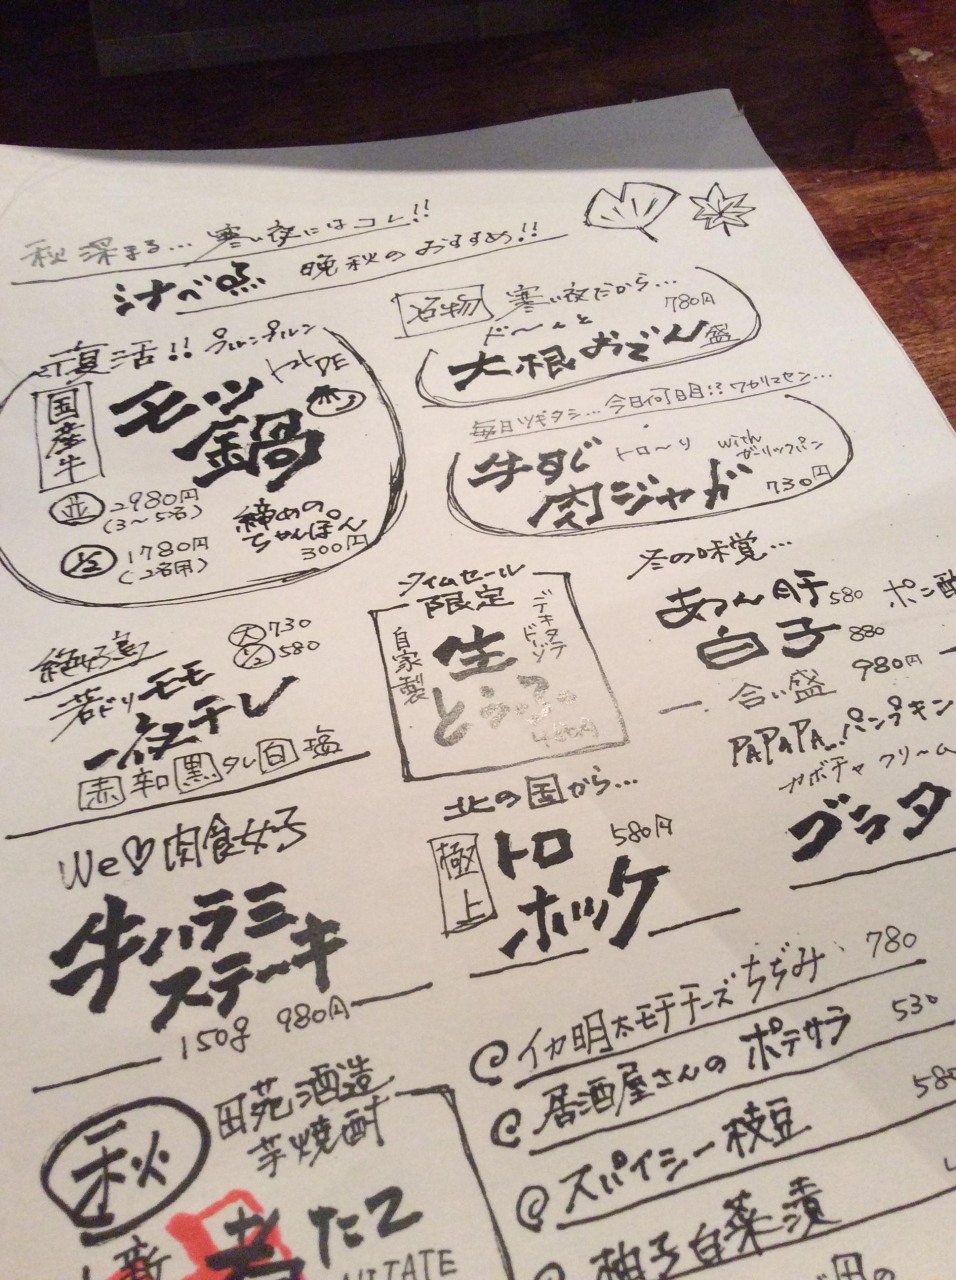 秋深まる... 寒い夜にはコレ!!
晩秋のおすすめ!!
名物
寒い夜だから...
780円
ド〜んと
大根おでん盛
復活!! プルンプルン
国産牛
モツ鍋
並 2980円
(3〜5名)
1/2 1780円
(2名用)
締めの
ちゃんぽん
300円
毎日ツギタシ... 今日何日目!? ワカリマセン...
牛すじ トロ〜リ with
ガーリックパン
肉ジャガ 730円
絶好鳥
大 730
1/2 580
若どりモモ
一夜干し
赤 辛 黒 タレ 白 塩
タイムセール
限定
自家製
生
とうふ
デキタテ
ドーゾ
480円
冬の味覚...
あん肝 580 ポン酢
白子 880
合い盛 980円
PAPAPA...パンプキン
カボチャクリーム
グラタ
We♡肉食女子
牛ハラミ
ステーキ
150g 980円
北の国から...
極上
トロ 580円
ホッケ
イカ明太モチチーズちぢみ 780
居酒屋さんのポテサラ 530
スパイシー枝豆 580
柚子白菜漬
秋
田苑酒造
芋焼酎
新
たて